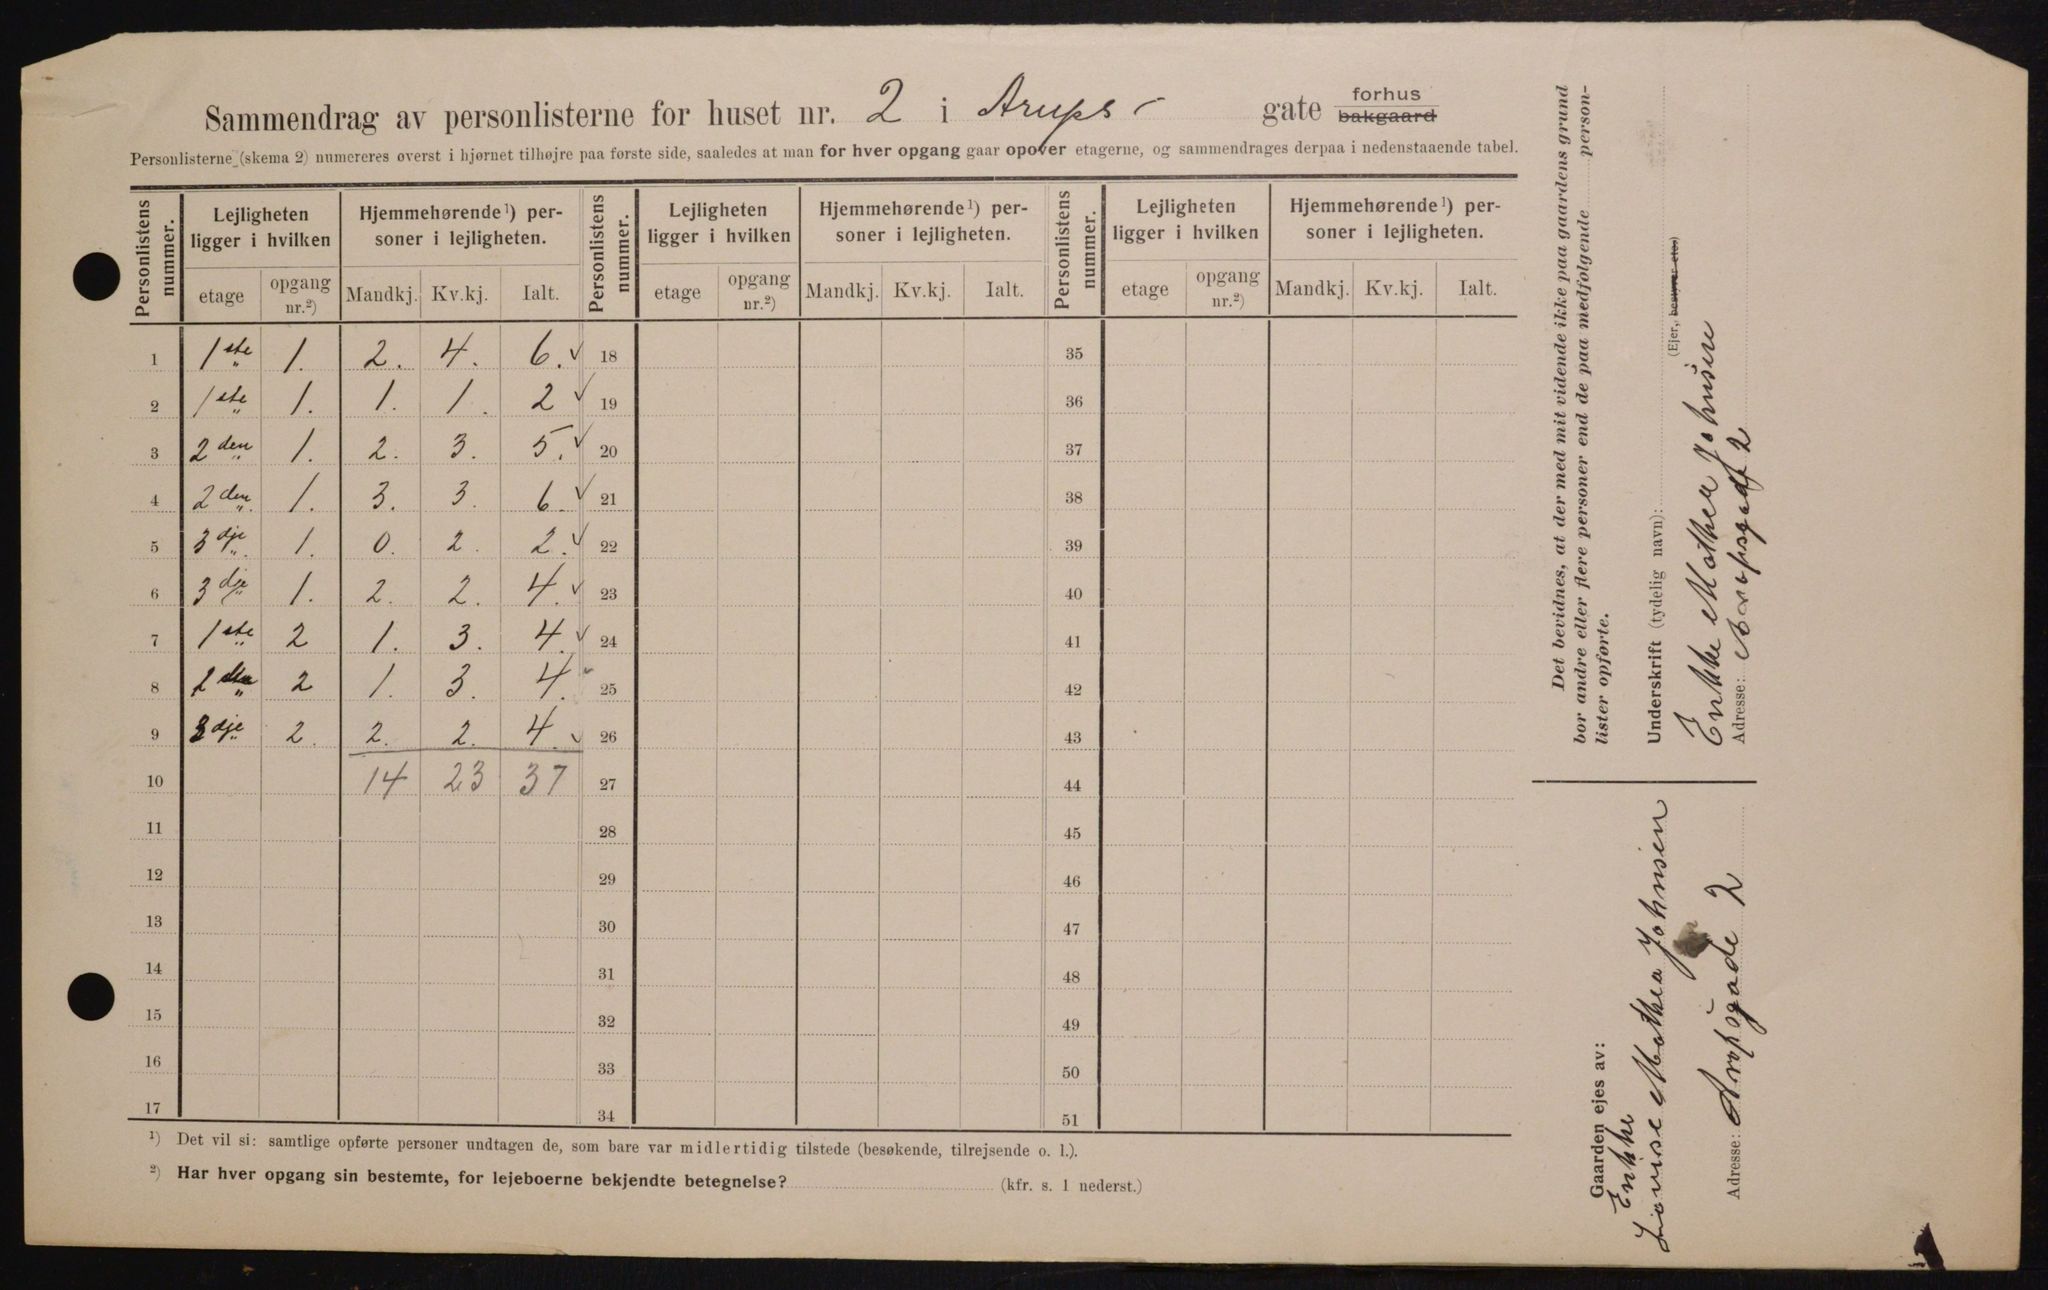 Sammendrag av personlisterne for huset nr. 2 i Arups- gate forhus bakgaard
Personlisterne (skema 2) numereres øverst i hjørnet tilhøjre paa første side, saaledes at man for hver opgang gaar opover etagerne, og sammendrages derpaa i nedenstaaende tabel.
Personlistens nummer. Lejligheten ligger i hvilken Hjemmehørende¹) personer i lejligheten. Personlistens nummer. Lejligheten ligger i hvilken Hjemmehørende¹) personer i lejligheten. Personlistens nummer. Lejligheten ligger i hvilken Hjemmehørende¹) personer i lejligheten.
etage opgang nr.²) Mandkj. Kv.kj. Ialt. etage opgang nr.²) Mandkj. Kv.kj. Ialt. etage opgang nr.²) Mandkj. Kv.kj. Ialt.
1 1ste 1. 2. 4. 6. ✓ 18 35
2 1ste 1. 1. 1. 2 ✓ 19 36
3 2den 1. 2. 3. 5. ✓ 20 37
4 2den 1. 3. 3. 6. ✓ 21 38
5 3dje 1. 0. 2. 2. ✓ 22 39
6 3dje 1. 2. 2. 4. ✓ 23 40
7 1ste 2 1. 3. 4. ✓ 24 41
8 2den 2 1. 3. 4. 25 42
9 3dje 2. 2. 2. 4. ✓ 26 43
10 14 23 37 27 44
11 28 45
12 29 46
13 30 47
14 31 48
15 32 49
16 33 50
17 34 51
¹) Det vil si: samtlige opførte personer undtagen de, som bare var midlertidig tilstede (besøkende, tilrejsende o. l.).
²) Har hver opgang sin bestemte, for lejeboerne bekjendte betegnelse? (kfr. s. 1 nederst.)
Det bevidnes, at der med mit vidende ikke paa gaardens grund
bor andre eller flere personer end de paa medfølgende personlister opførte.
Underskrift (tydelig navn):
(Ejer, bestyrer etc.)
Enkke Mathea Johnsen
Adresse: Arupsgade 2
Gaarden ejes av:
Enkke
Lovise Mathea Johnsen
Adresse: Arupsgade 2